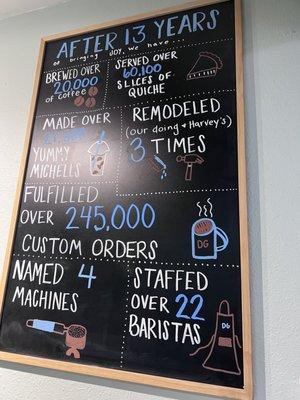 AFTER 13 YEARS
of bringing JOY, we have...
BREWED OVER
20,000
of coffee
SERVED OVER
60,100
SLICES OF
QUICHE
MADE OVER
YUMMY
MICHELLS
REMODELED
(our doing & Harvey's)
3 TIMES
FULFILLED
OVER 245,000
CUSTOM ORDERS
DG
NAMED 4
MACHINES
STAFFED
OVER 22
BARISTAS
DG